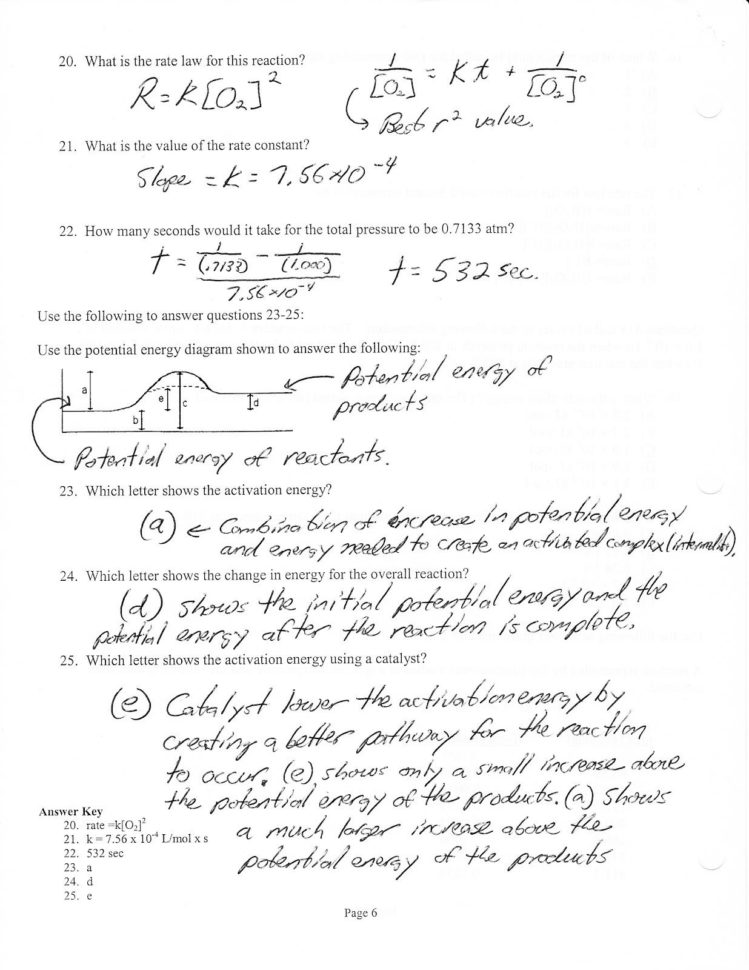 20. What is the rate law for this reaction?
R = K[O₂]²
1/[O₂] = Kt + 1/[O₂]°
Best r² value.
21. What is the value of the rate constant?
Slope = k = 7.56x10⁻⁴
22. How many seconds would it take for the total pressure to be 0.7133 atm?
t = (1/(.7133) - 1/(1.000)) / 7.56x10⁻⁴
t = 532 sec.
Use the following to answer questions 23-25:
Use the potential energy diagram shown to answer the following:
Potential energy of
products
a
e
c
d
b
Potential energy of reactants.
23. Which letter shows the activation energy?
(a) ← Combination of increase in potential energy
and energy needed to create an activated complex
24. Which letter shows the change in energy for the overall reaction?
(d) shows the initial potential energy and the
potential energy after the reaction is complete.
25. Which letter shows the activation energy using a catalyst?
(e) Catalyst lower the activation energy by
creating a better pathway for the reaction
to occur. (e) shows only a small increase above
the potential energy of the products. (a) shows
a much larger increase above the
potential energy of the products
Answer Key
20. rate =k[O₂]²
21. k = 7.56 x 10⁻⁴ L/mol x s
22. 532 sec
23. a
24. d
25. e
Page 6